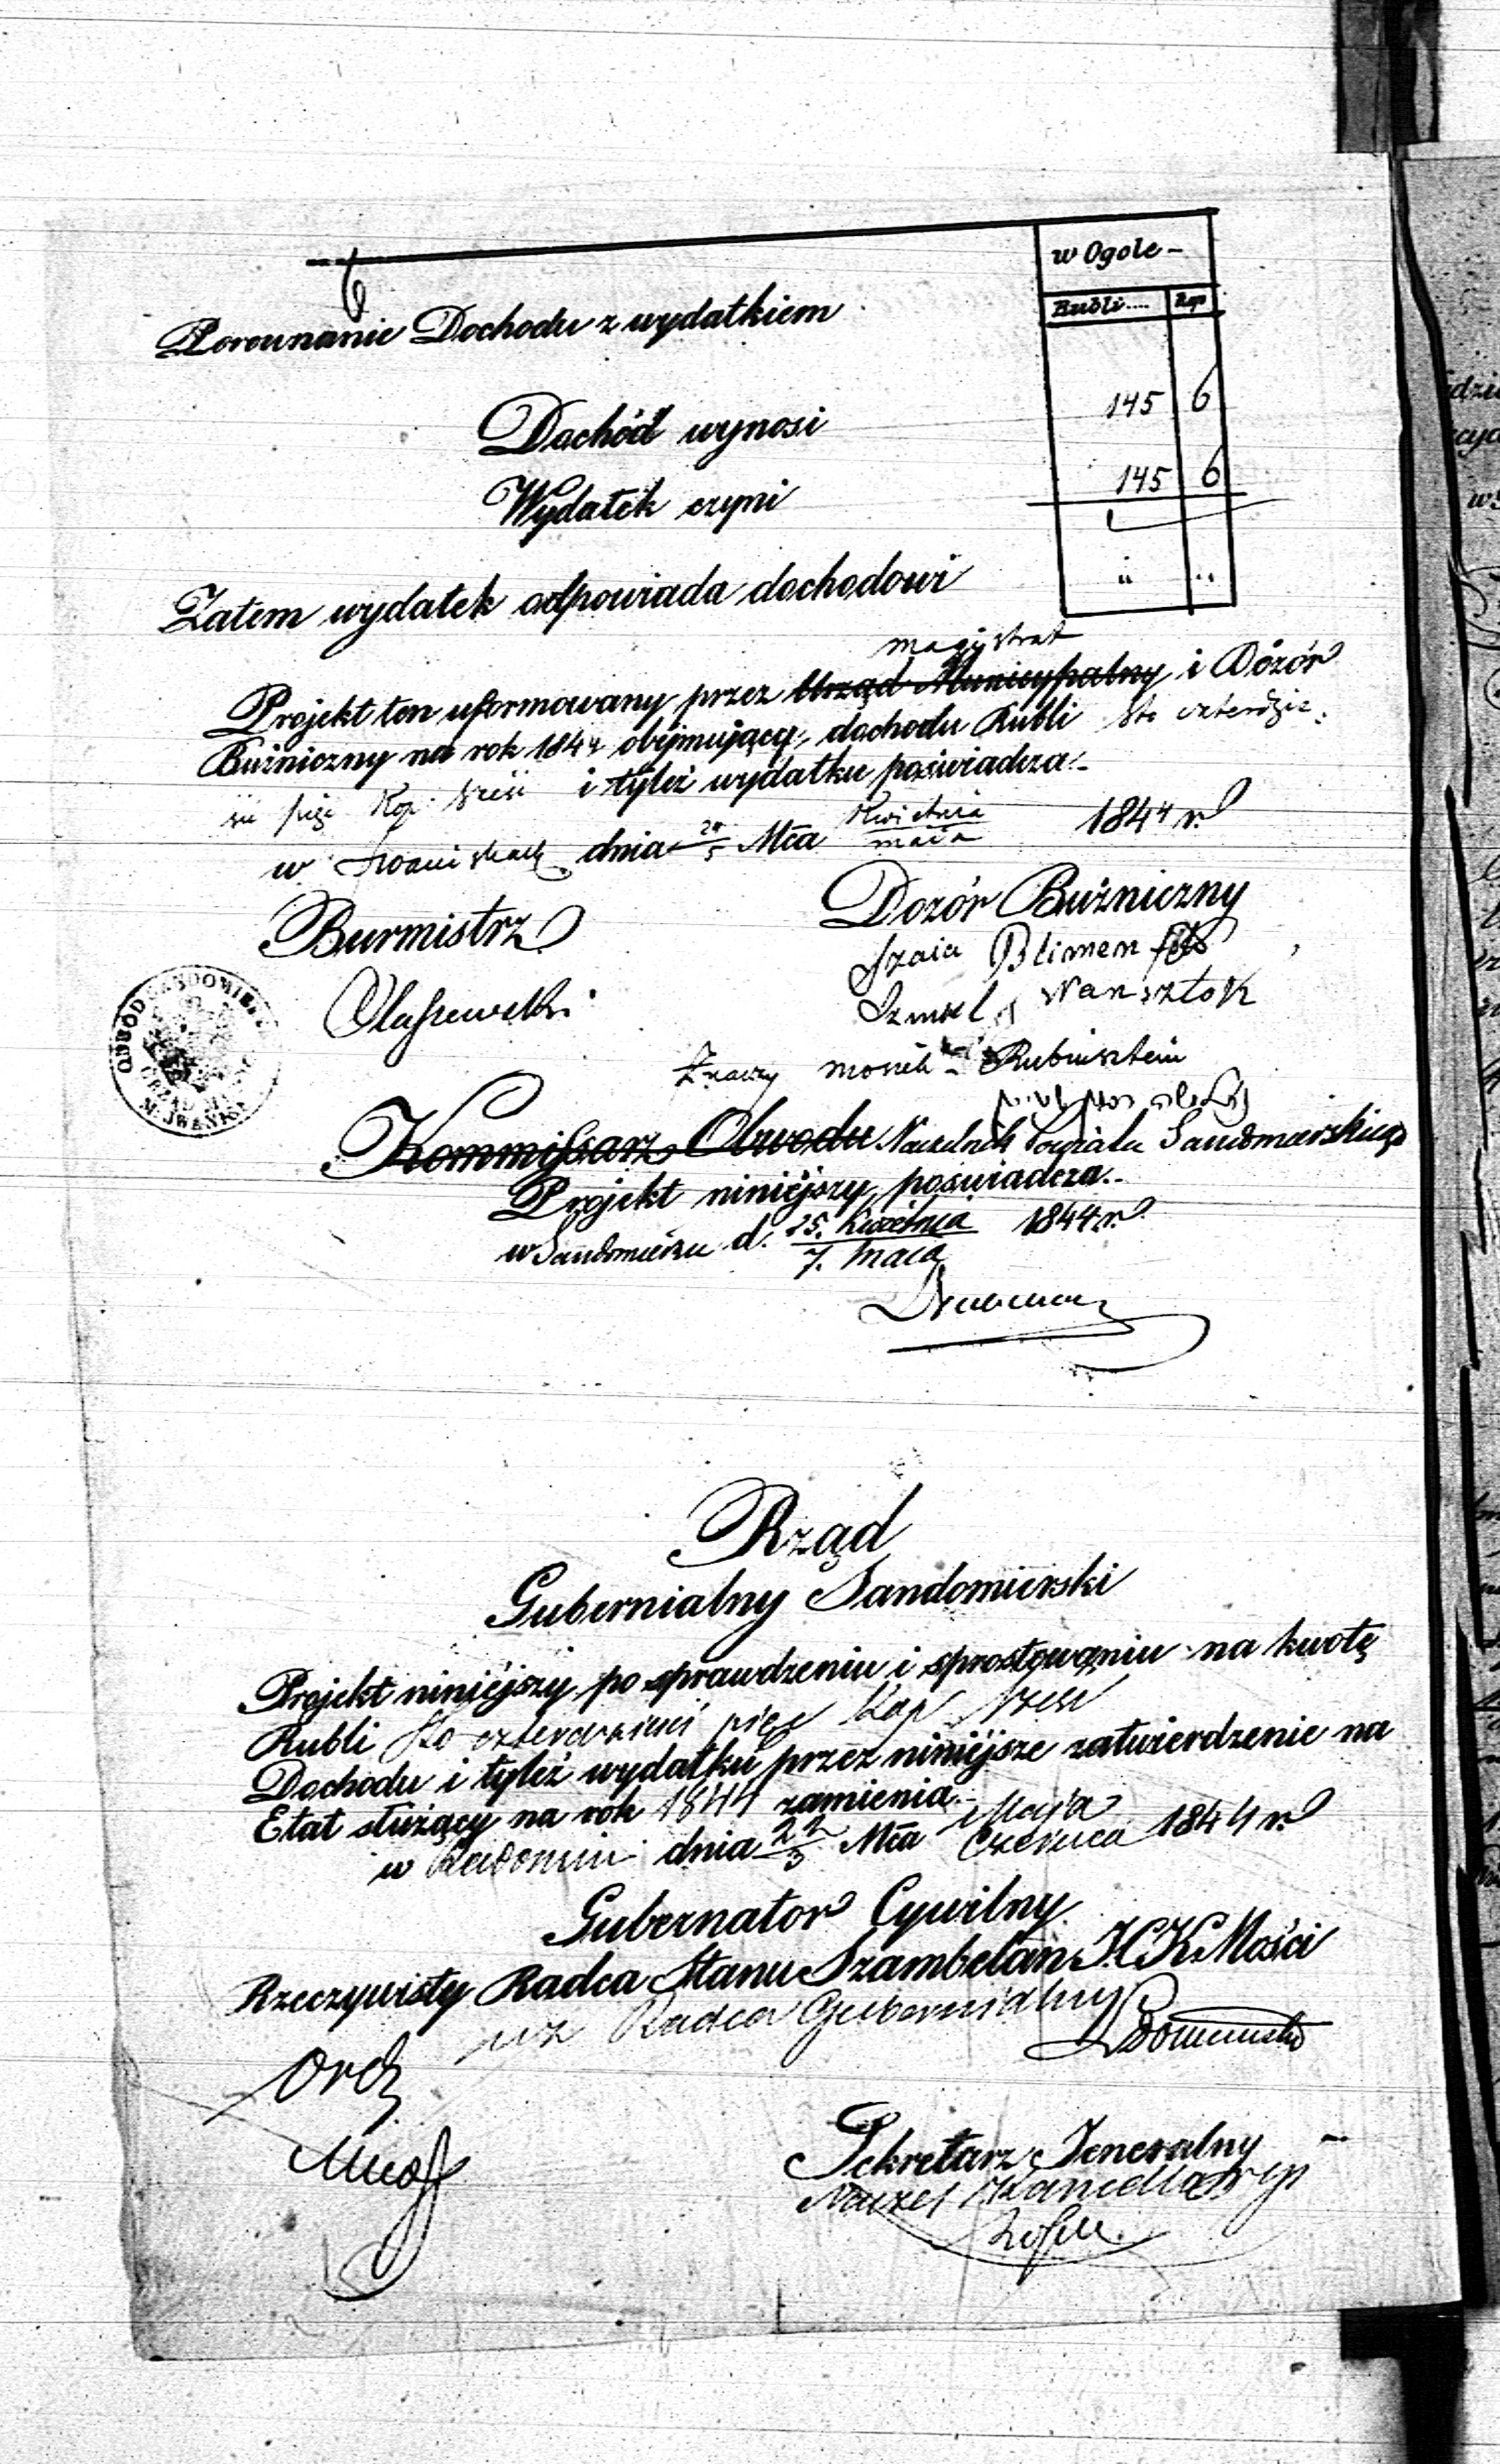 w Ogole –
Rubli.... Kop
Porownanie Dochodu z wydatkiem
Dochód wynosi 145 6
Wydatek czyni 145 6
Zatem wydatek odpowiada dochodowi " "
magistrat
Projekt ten uformowany przez Urząd Municypalny i Dozór
Buźniczny na rok 1844 obejmujący, dochodu Rubli Sto czterdzie.
ści pięć Kop. sześć i tyleż wydatku poświadcza.–
w Iwaniskach dnia 24/5 Mca Kwietnia/maia 1844 r.
Burmistrz Dozór Buźniczny
Szaia Blimen
Szmul Wansztok
Znaczy Mosiek Rubinsztein
OBWOD SANDOMIERS
Kommissarz Obwodu Naczelnik Powiatu Sandomierskiego
Projekt niniejszy poświadcza.–
w Sandomierzu d. 25. Kwietnia/7. Maca 1844 r.
Rząd
Gubernialny Sandomierski
Projekt niniejszy po sprawdzeniu i sprostowaniu na kwotę
Rubli Sto czterdzieści pięć Kop sześć
Dochodu i tyleż wydatku przez niniejsze zatwierdzenie na
Etat służący na rok 1844 zamienia.–
w Radomiu dnia 22/3 Mca Maja/Czerwca 1844 r.
Gubernator Cywilny
Rzeczywisty Radca Stanu Szambelan J.C.K. Mości
wz Radca Gubernialny
Sekretarz Jeneralny
Naczel Kancellaryi